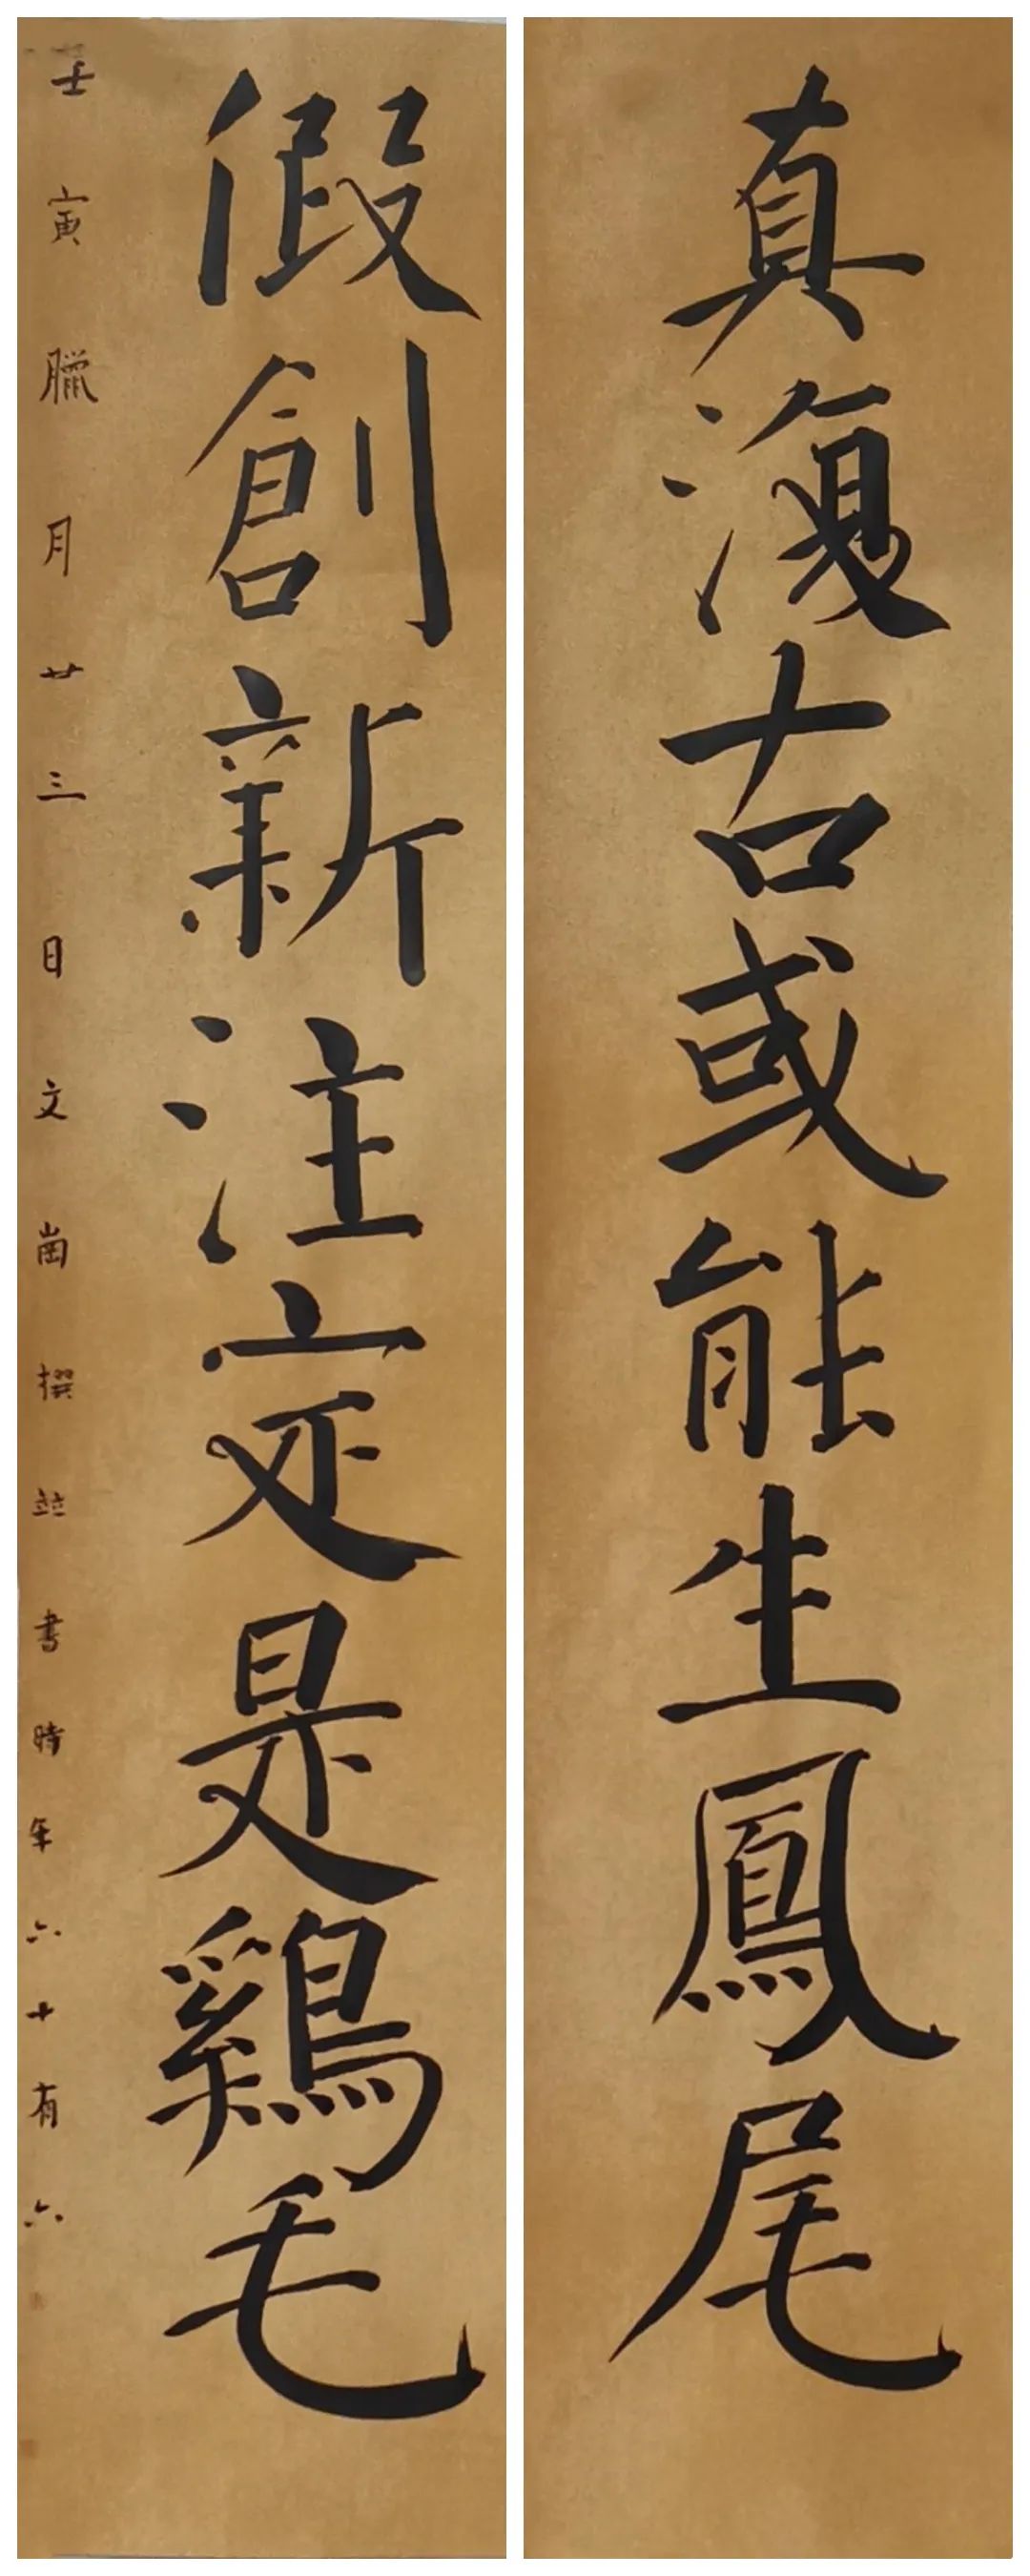 真復古或能生鳳尾
假創新注定是鷄毛
壬寅臘月廿三日文崗撰並書時年六十有六